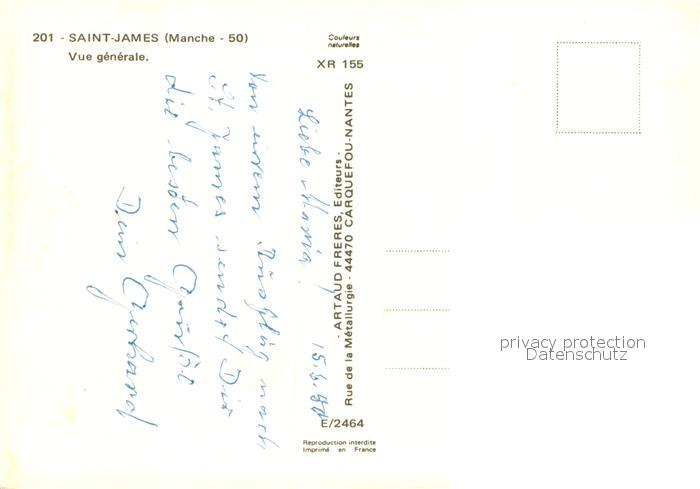 201 - SAINT-JAMES (Manche - 50)
Vue générale.
Couleurs
naturelles
XR 155
Liebe Maria!
15.6.80
Von einem Ausflug nach
St. James sendet Dir
die besten Grüße
Dein Gerhard
ARTAUD FRERES, Editeurs -
Rue de la Métallurgie - 44470 CARQUEFOU-NANTES
E/2464
Reproduction interdite
Imprimé en France
privacy protection
Datenschutz